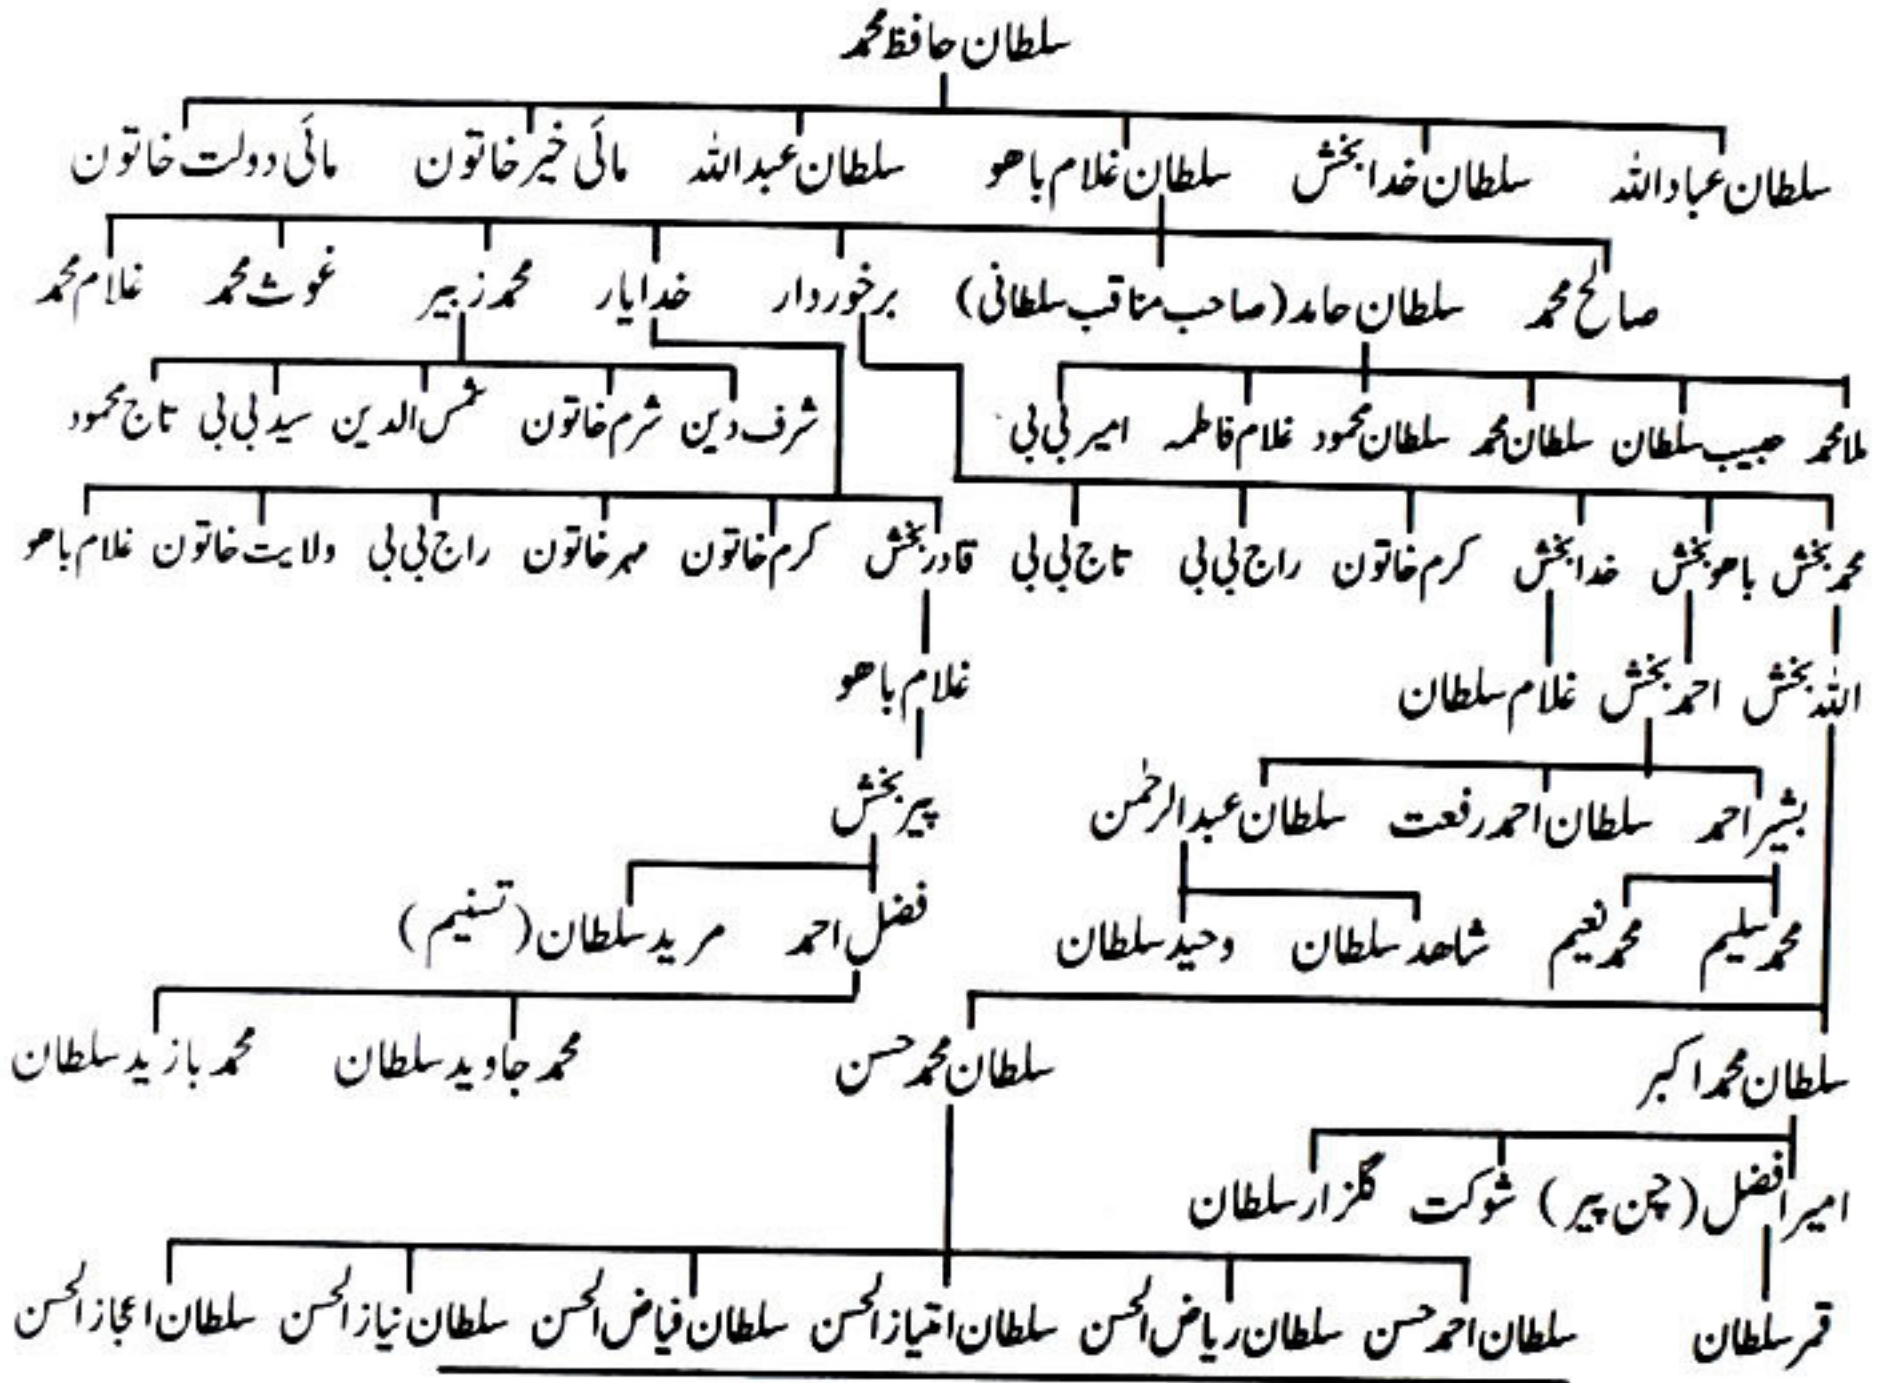 سلطان حافظ محمد
سلطان عباد اللہ سلطان خدا بخش سلطان غلام باھو سلطان عبد اللہ مائی خیر خاتون مائی دولت خاتون
صالح محمد سلطان حامد (صاحب مناقب سلطانی) برخوردار خدایار محمد زبیر غوث محمد غلام محمد
ملا محمد حبیب سلطان سلطان محمد سلطان محمود غلام فاطمہ امیر بی بی شرف دین شرم خاتون شمس الدین سید بی بی تاج محمود
محمد بخش باھو بخش خدا بخش کرم خاتون راج بی بی تاج بی بی قادر بخش کرم خاتون مہر خاتون راج بی بی ولایت خاتون غلام باھو
اللہ بخش احمد بخش غلام سلطان غلام باھو
بشیر احمد سلطان احمد رفعت سلطان عبد الرحمٰن پیر بخش
محمد سلیم محمد نعیم شاھد سلطان وحید سلطان فضل احمد مرید سلطان (تسنیم)
سلطان محمد اکبر سلطان محمد حسن محمد جاوید سلطان محمد بازید سلطان
امیر افضل (چن پیر) شوکت گلزار سلطان
قمر سلطان سلطان احمد حسن سلطان ریاض الحسن سلطان امتیاز الحسن سلطان فیاض الحسن سلطان نیاز الحسن سلطان اعجاز الحسن